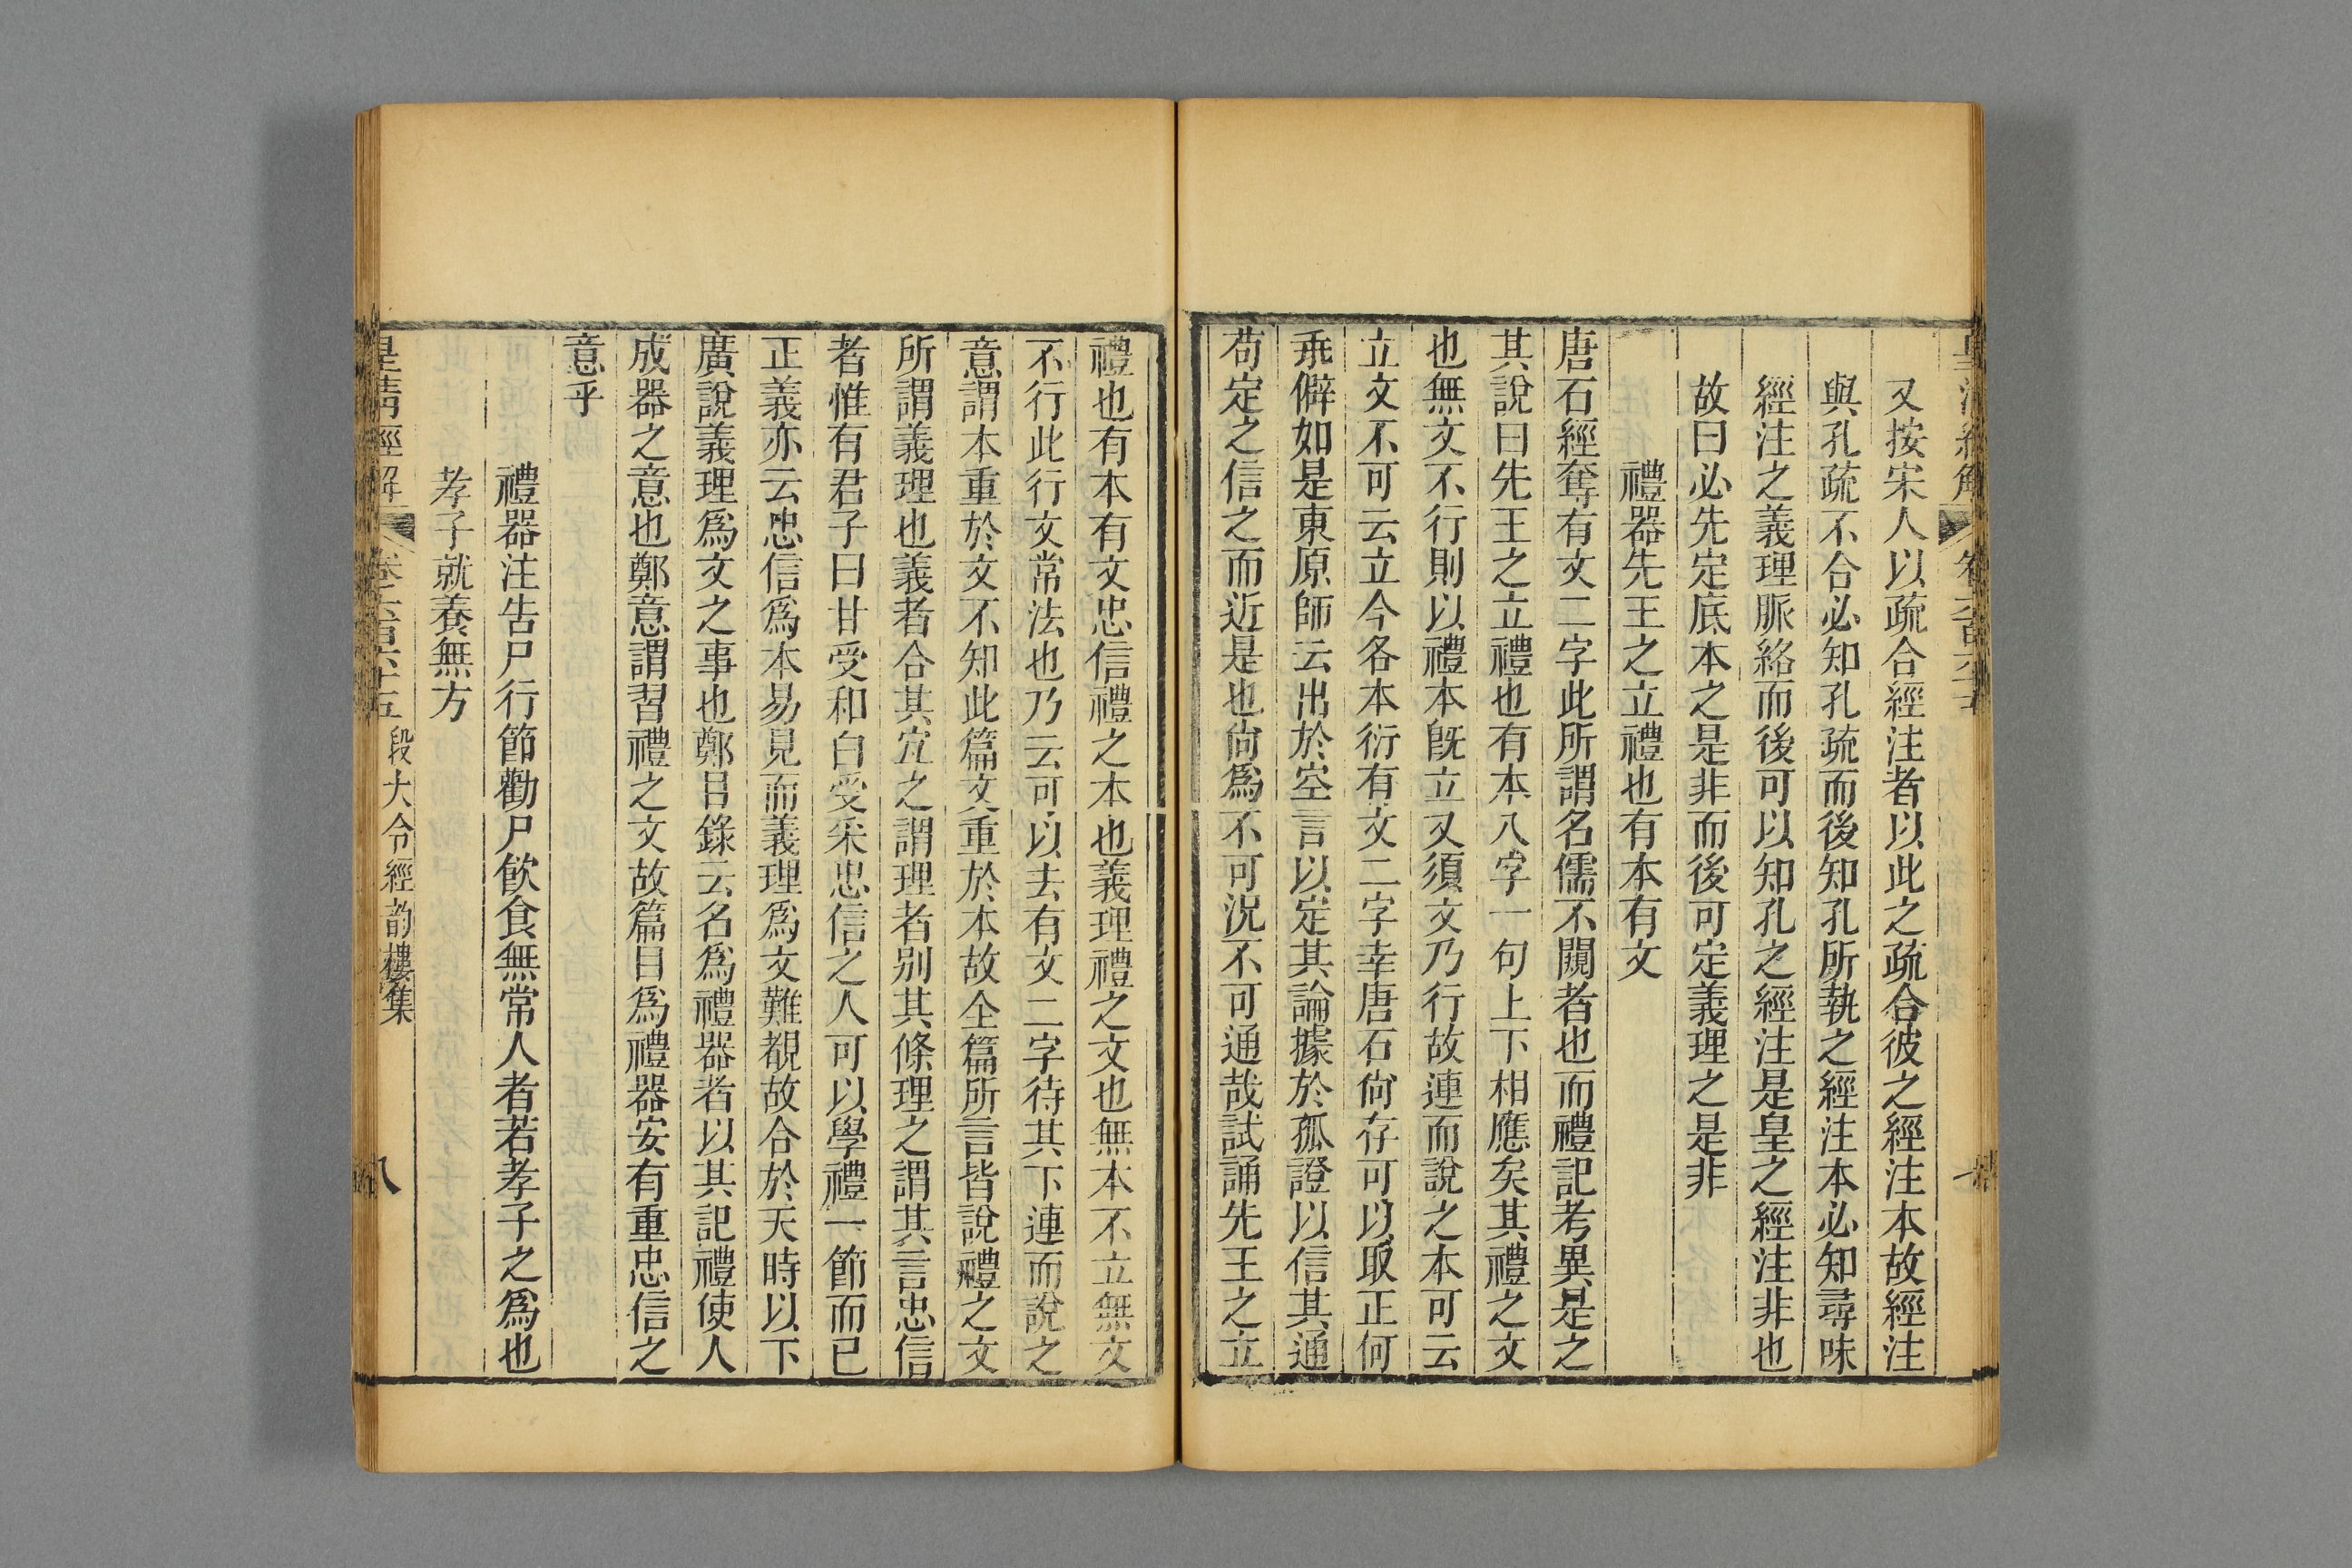 又按宋人以疏合經注者以此之疏合彼之經注本故經注
與孔疏不合必知孔疏而後知孔所執之經注本必知尋味
經注之義理脈絡而後可以知孔之經注是皇之經注非也
故曰必先定底本之是非而後可定義理之是非
禮器先王之立禮也有本有文
唐石經奪有文二字此所謂名儒不闚者也而禮記考異是之
其說曰先王之立禮也有本八字一句上下相應矣其禮之文
也無文不行則以禮本旣立又須文乃行故連而說之本可云
立文不可云立今各本衍有文二字幸唐石尙存可以取正何
乖僻如是東原師云出於空言以定其論據於孤證以信其通
苟定之信之而近是也尙爲不可況不可通哉試誦先王之立
禮也有本有文忠信禮之本也義理禮之文也無本不立無文
不行此行文常法也乃云可以去有文二字待其下連而說之
意謂本重於文不知此篇文重於本故全篇所言皆說禮之文
所謂義理也義者合其宜之謂理者别其條理之謂其言忠信
者惟有君子曰甘受和白受采忠信之人可以學禮一節而已
正義亦云忠信爲本易見而義理爲文難覩故合於天時以下
廣說義理爲文之事也鄭目錄云名爲禮器者以其記禮使人
成器之意也鄭意謂習禮之文故篇目爲禮器安有重忠信之
意乎
禮器注告尸行節勸尸飮食無常人者若孝子之爲也
孝子就養無方
皇淸經解 卷六百六十五 段大令經韵樓集 八